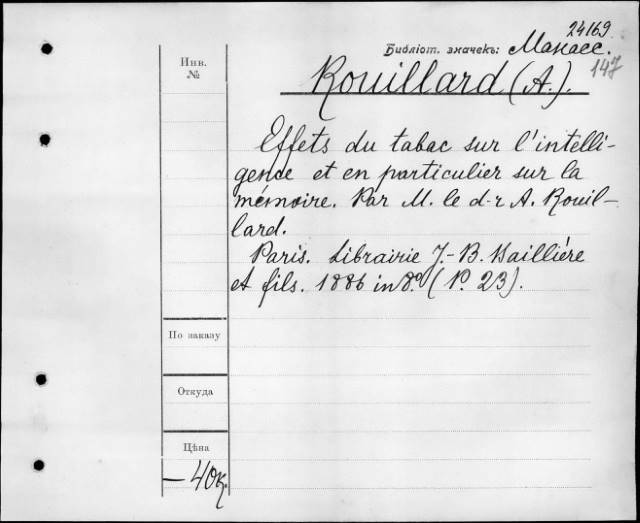 24169
Библіот. значекъ: Манасс.
147
Rouillard (A.).
Инв.
№
Effets du tabac sur l'intelli-
gence et en particulier sur la
mémoire. Par M. le d-r A. Rouil-
lard.
Paris. Librairie J.-B. Bailliére
et fils. 1886 in 8.º (P. 23).
По заказу
Откуда
Цѣна
— 40к.